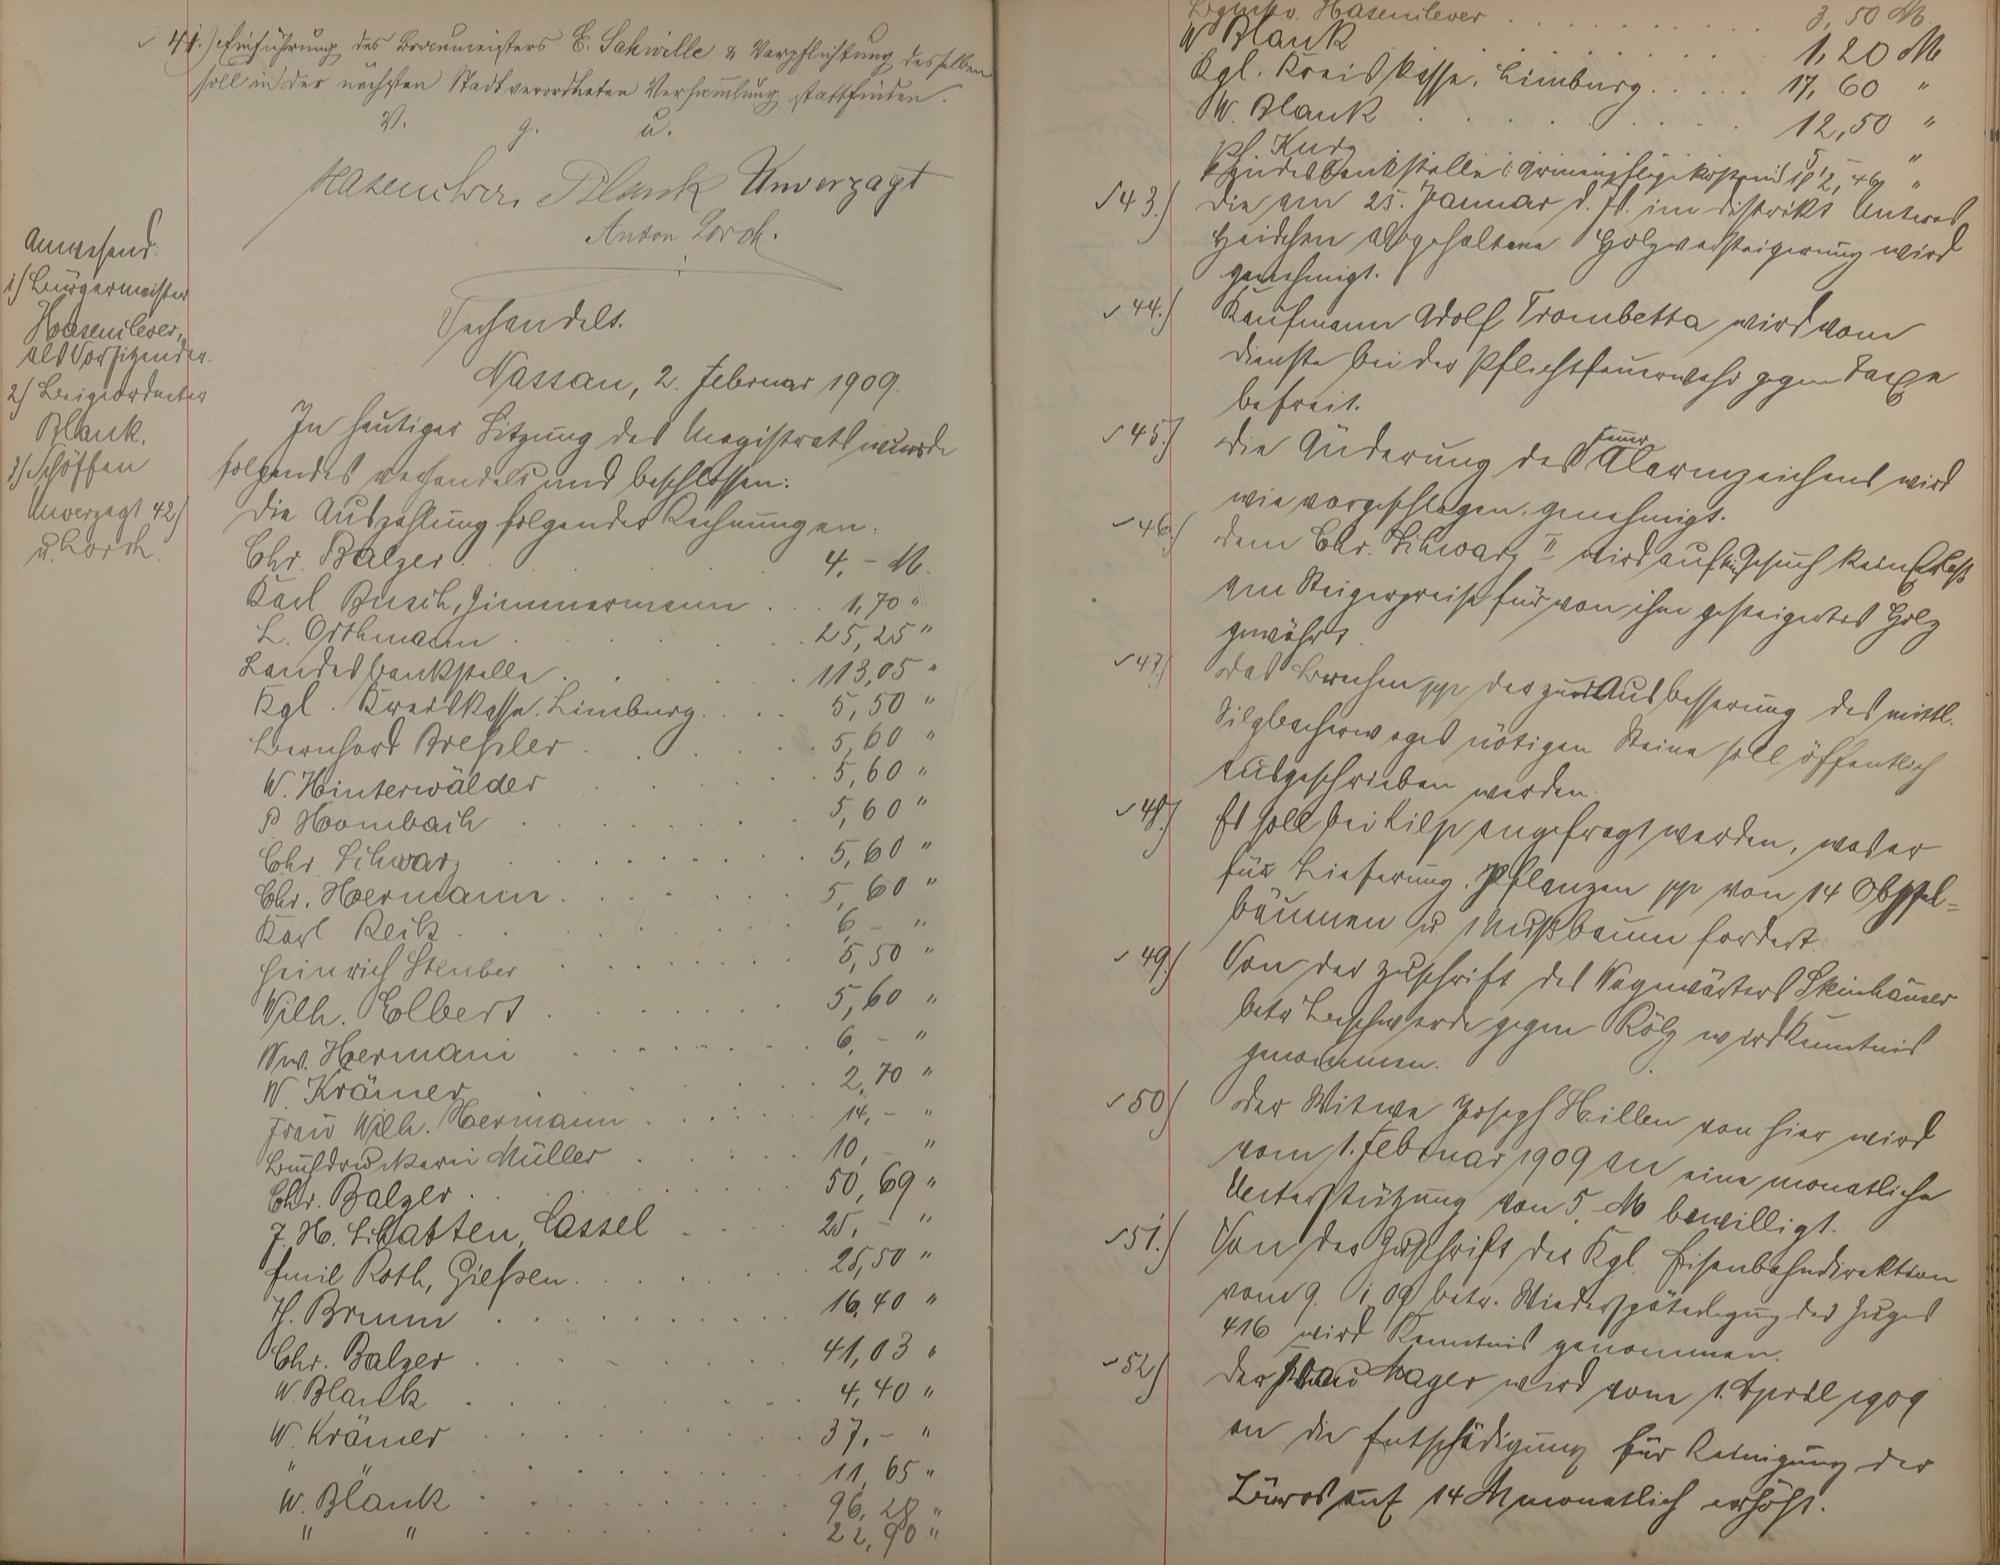 41.) Einführung des Braumeisters E. Schwille & Verpflichtung desselben
soll in der nächsten Stadtverordneten Versammlung stattfinden.
V. g. u.
Hasenclever, Blank Unverzagt
Anton Lorch.
Anwesend:
1) Bürgermeister
Hasenclever,
als Vorsitzender.
2) Beigeordneter
Blank.
3) Schöffen
Unverzagt
u. Lorch.
Verhandelt.
Nassau, 2. Februar 1909.
In heutiger Sitzung des Magistrats wurde
folgendes verhandelt und beschlossen:
42) Die Auszahlung folgender Rechnungen:
Chr. Balzer . . . 4,- M.
Karl Busch, Zimmermann . . . 1,70 "
L. Orthmann . . . 25,25 "
Landesbankstelle . . . 113,05 "
Kgl. Kreiskasse, Limburg . . . 5,50 "
Bernhard Bressler . . . 5,60 "
W. Hinterwälder . . . 5,60 "
P Hombach . . . 5,60 "
Chr. Schwarz . . . 5,60 "
Chr. Hermann . . . 5,60 "
Karl Reik . . . 6,- "
Heinrich Steuber . . . 5,50 "
Wilh. Elbert . . . 5,60 "
Ww. Hermann . . . 6,- "
W. Krämer . . . 2,70 "
Frau Wilh. Hermann . . . 14,- "
Buchdruckerei Müller . . . 10,- "
Chr. Balzer . . . 50,69 "
J. H. Schatten, Cassel . . . 25,- "
Emil Roth, Giessen . . . 25,50 "
H. Brunn . . . 16,40 "
Chr. Balzer . . . 41,03 "
W. Blank . . . 4,40 "
W. Krämer . . . 37,- "
" " . . . 11,65 "
W. Blank . . . 96,28 "
" " . . . 22,90 "
Hasenclever . . . 3,50 M.
W Blank . . . 1,20 M
Kgl. Kreiskasse, Limburg . . . 17,60 "
W. Blank . . . 12,50 "
Kurz
Landesbankstelle
43.) Die am 25. Januar d. Js. im Distrikt Unteres
Heidchen abgehaltene Holzversteigerung wird
genehmigt.
44.) Kaufmann Adolf Trombetta wird vom
Dienste bei der Pflichtfeuerwehr gegen Taxe
befreit.
45.) Die Änderung des Feuer Alarmzeichens wird
wie vorgeschlagen, genehmigt.
46.) Dem Chr. Schwarz II wird auf sein Gesuch kein Erlass
am Steigerpreise für von ihm gesteigertes Holz
gewährt.
47.) Das Brechen pp der zur Ausbesserung des mittl.
Silgbacherweges nötigen Steine soll öffentlich
ausgeschrieben werden.
48.) Es soll bei Kilp angefragt werden, was er
für Lieferung, Pflanzen pp von 14 Obstbäumen
u 1 Nußbaum fordert.
49.) Von der Zuschrift des Wegewärters Steinhäuser
betr Beschwerde gegen Rölz wird Kenntnis
genommen.
50) Der Witwe Joseph Hillen von hier wird
vom 1. Februar 1909 an eine monatliche
Unterstützung von 5,- M bewilligt.
51.) Von der Zuschrift der Kgl. Eisenbahndirektion
vom 9. 1. 09 betr. Wiederspäterlegung des Zuges
416 wird Kenntnis genommen.
52) Der Frau Hager wird vom 1. April 1909
an die Entschädigung für Reinigung der
Büros auf 14 M monatlich erhöht.